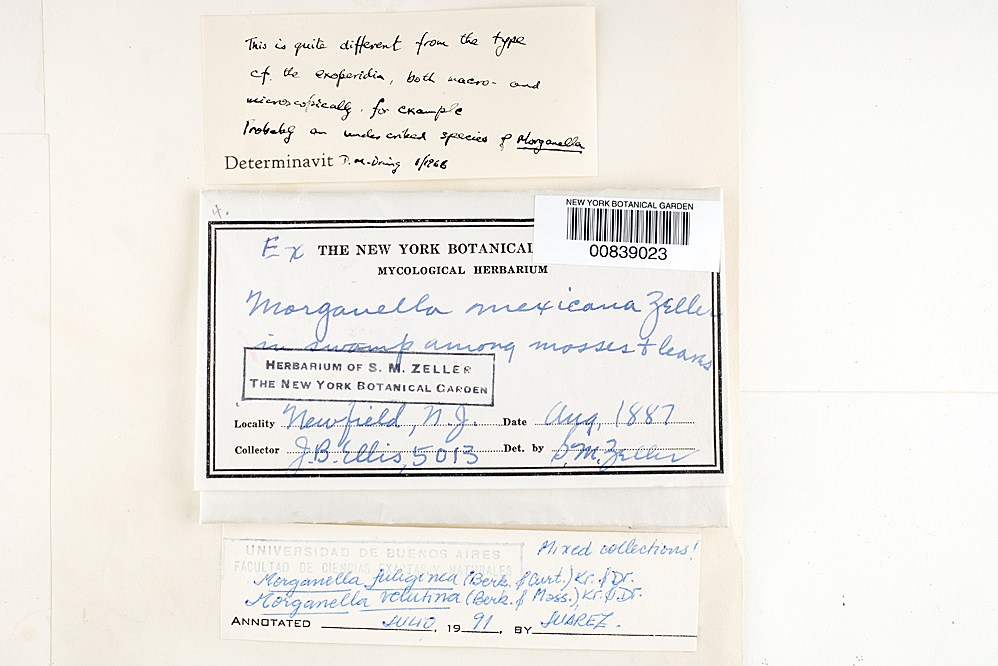 This is quite different from the type
cf. the exoperidia, both macro- and
microscopically. for example
Probably an undescribed species of Morganella
Determinavit D. M. Dring 1/1968
4.
NEW YORK BOTANICAL GARDEN
00839023
Ex THE NEW YORK BOTANICAL
MYCOLOGICAL HERBARIUM
Morganella mexicana Zeller
in swamp among mosses & leaves
HERBARIUM OF S. M. ZELLER
THE NEW YORK BOTANICAL GARDEN
Locality Newfield, N.J. Date Aug, 1887
Collector J.B. Ellis, 5013 Det. by S. M. Zeller
UNIVERSIDAD DE BUENOS AIRES
FACULTAD DE CIENCIAS EXACTAS Y NATURALES
Mixed collections!
Morganella fuliginea (Berk. & Curt.) Kr. & Dr.
Morganella velutina (Berk. & Mass.), Kr. & Dr.
ANNOTATED JULIO, 1991, BY JUAREZ.